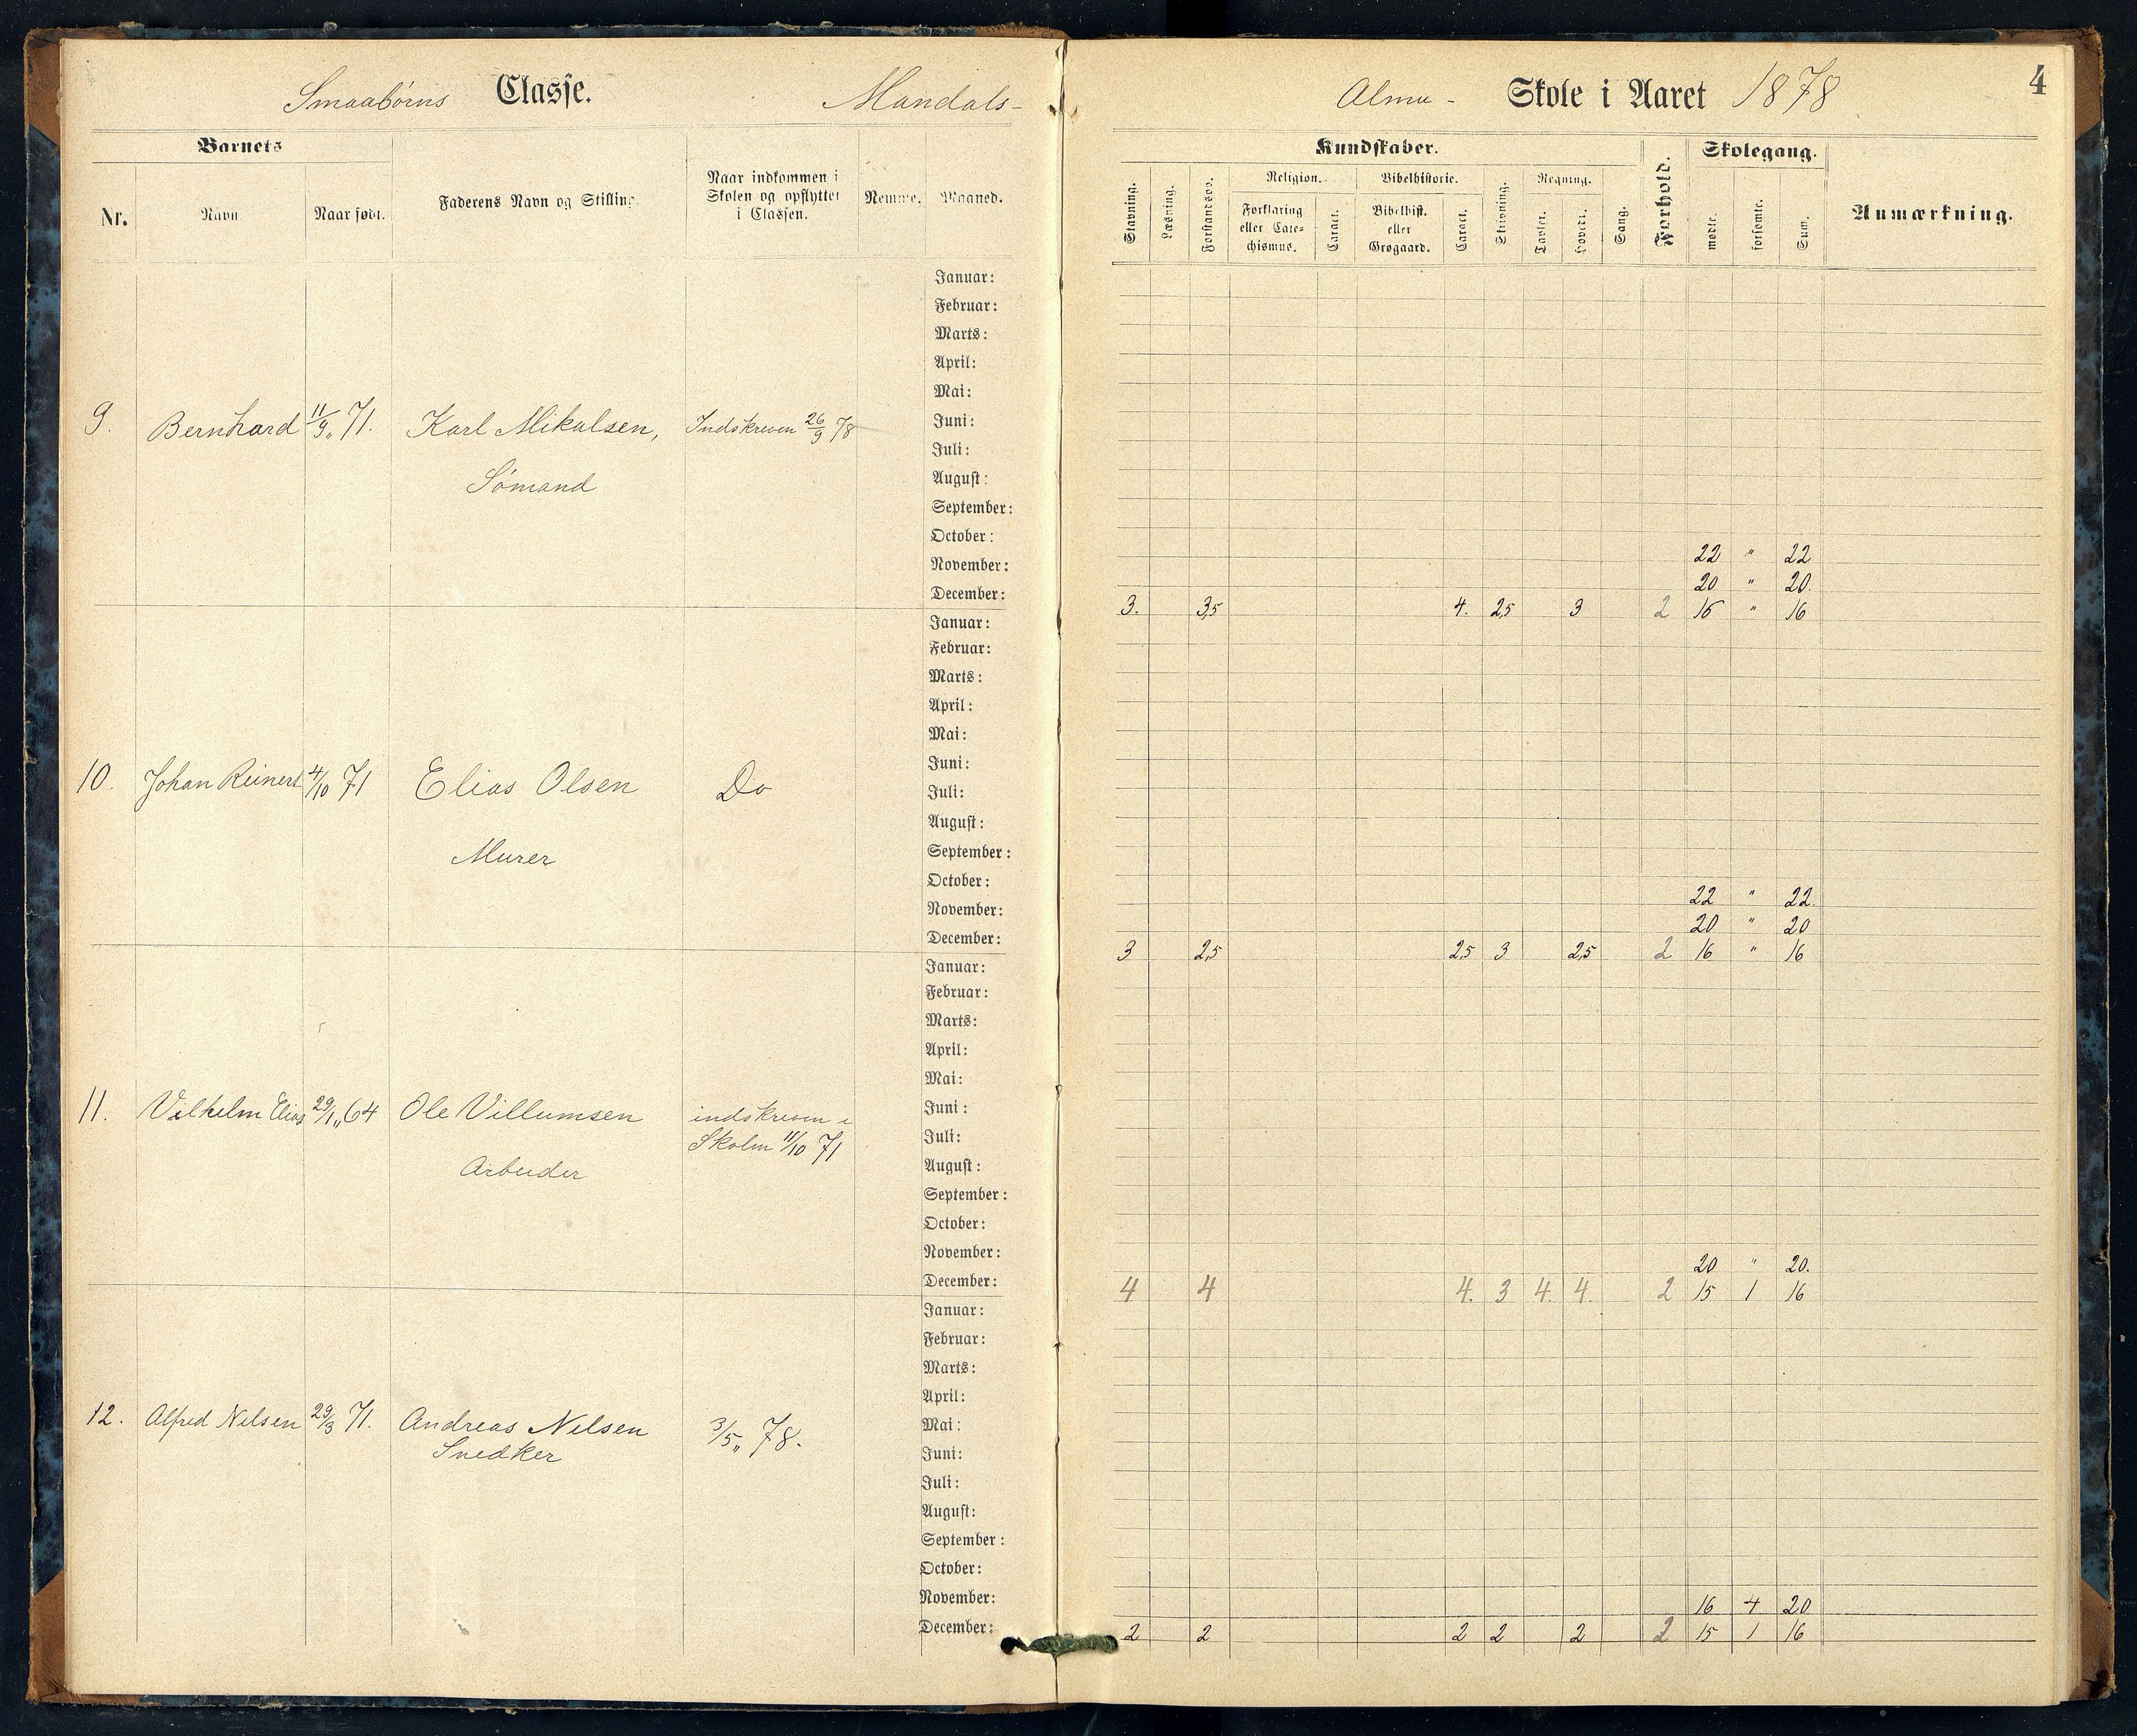 Smaabörns Classe. Mandals-
Barnets
Nr.
Navn
Naar født.
Faderens Navn og Stilling.
Naar indkommen i
Skolen og opflyttet
i Classen.
Nemme.
Maaned.
9. Bernhard 11/9 71. Karl Mikalsen, Indskreven 26/9 78
Sömand
Januar:
Februar:
Marts:
April:
Mai:
Juni:
Juli:
August:
September:
October:
November:
December:
10. Johan Reinert 4/10 71 Elias Olsen Do
Murer
Januar:
Februar:
Marts:
April:
Mai:
Juni:
Juli:
August:
September:
October:
November:
December:
11. Vilhelm Elias 29/1 64 Ole Villumsen indskreven i
Skolen 11/10 71
Arbeider
Januar:
Februar:
Marts:
April:
Mai:
Juni:
Juli:
August:
September:
October:
November:
December:
12. Alfred Nilsen 29/3 71. Andreas Nilsen 3/5 78.
Snedker
Januar:
Februar:
Marts:
April:
Mai:
Juni:
Juli:
August:
September:
October:
November:
December:
Almu- Skole i Aaret 1878 4
Kundskaber.
Stavning.
Læsning.
Forstandsøv.
Religion.
Forklaring
eller Cate-
chismus.
Caract.
Bibelhistorie.
Bibelhist.
eller
Grøgaard.
Caract.
Skrivning.
Regning.
Tavler.
Hoved.
Sang.
Forhold.
Skolegang.
mødte.
forsømte.
Sum.
Anmærkning.
22 " 22
20 " 20.
3. 3,5 4. 2,5 3 2 16 " 16
22 " 22.
20 " 20
3 2,5 2,5 3 2,5 2 16 " 16
20 " 20.
4 4 4. 3 4. 4. 2 15 1 16
16 4 20
2 2 2 2 2 2 15 1 16